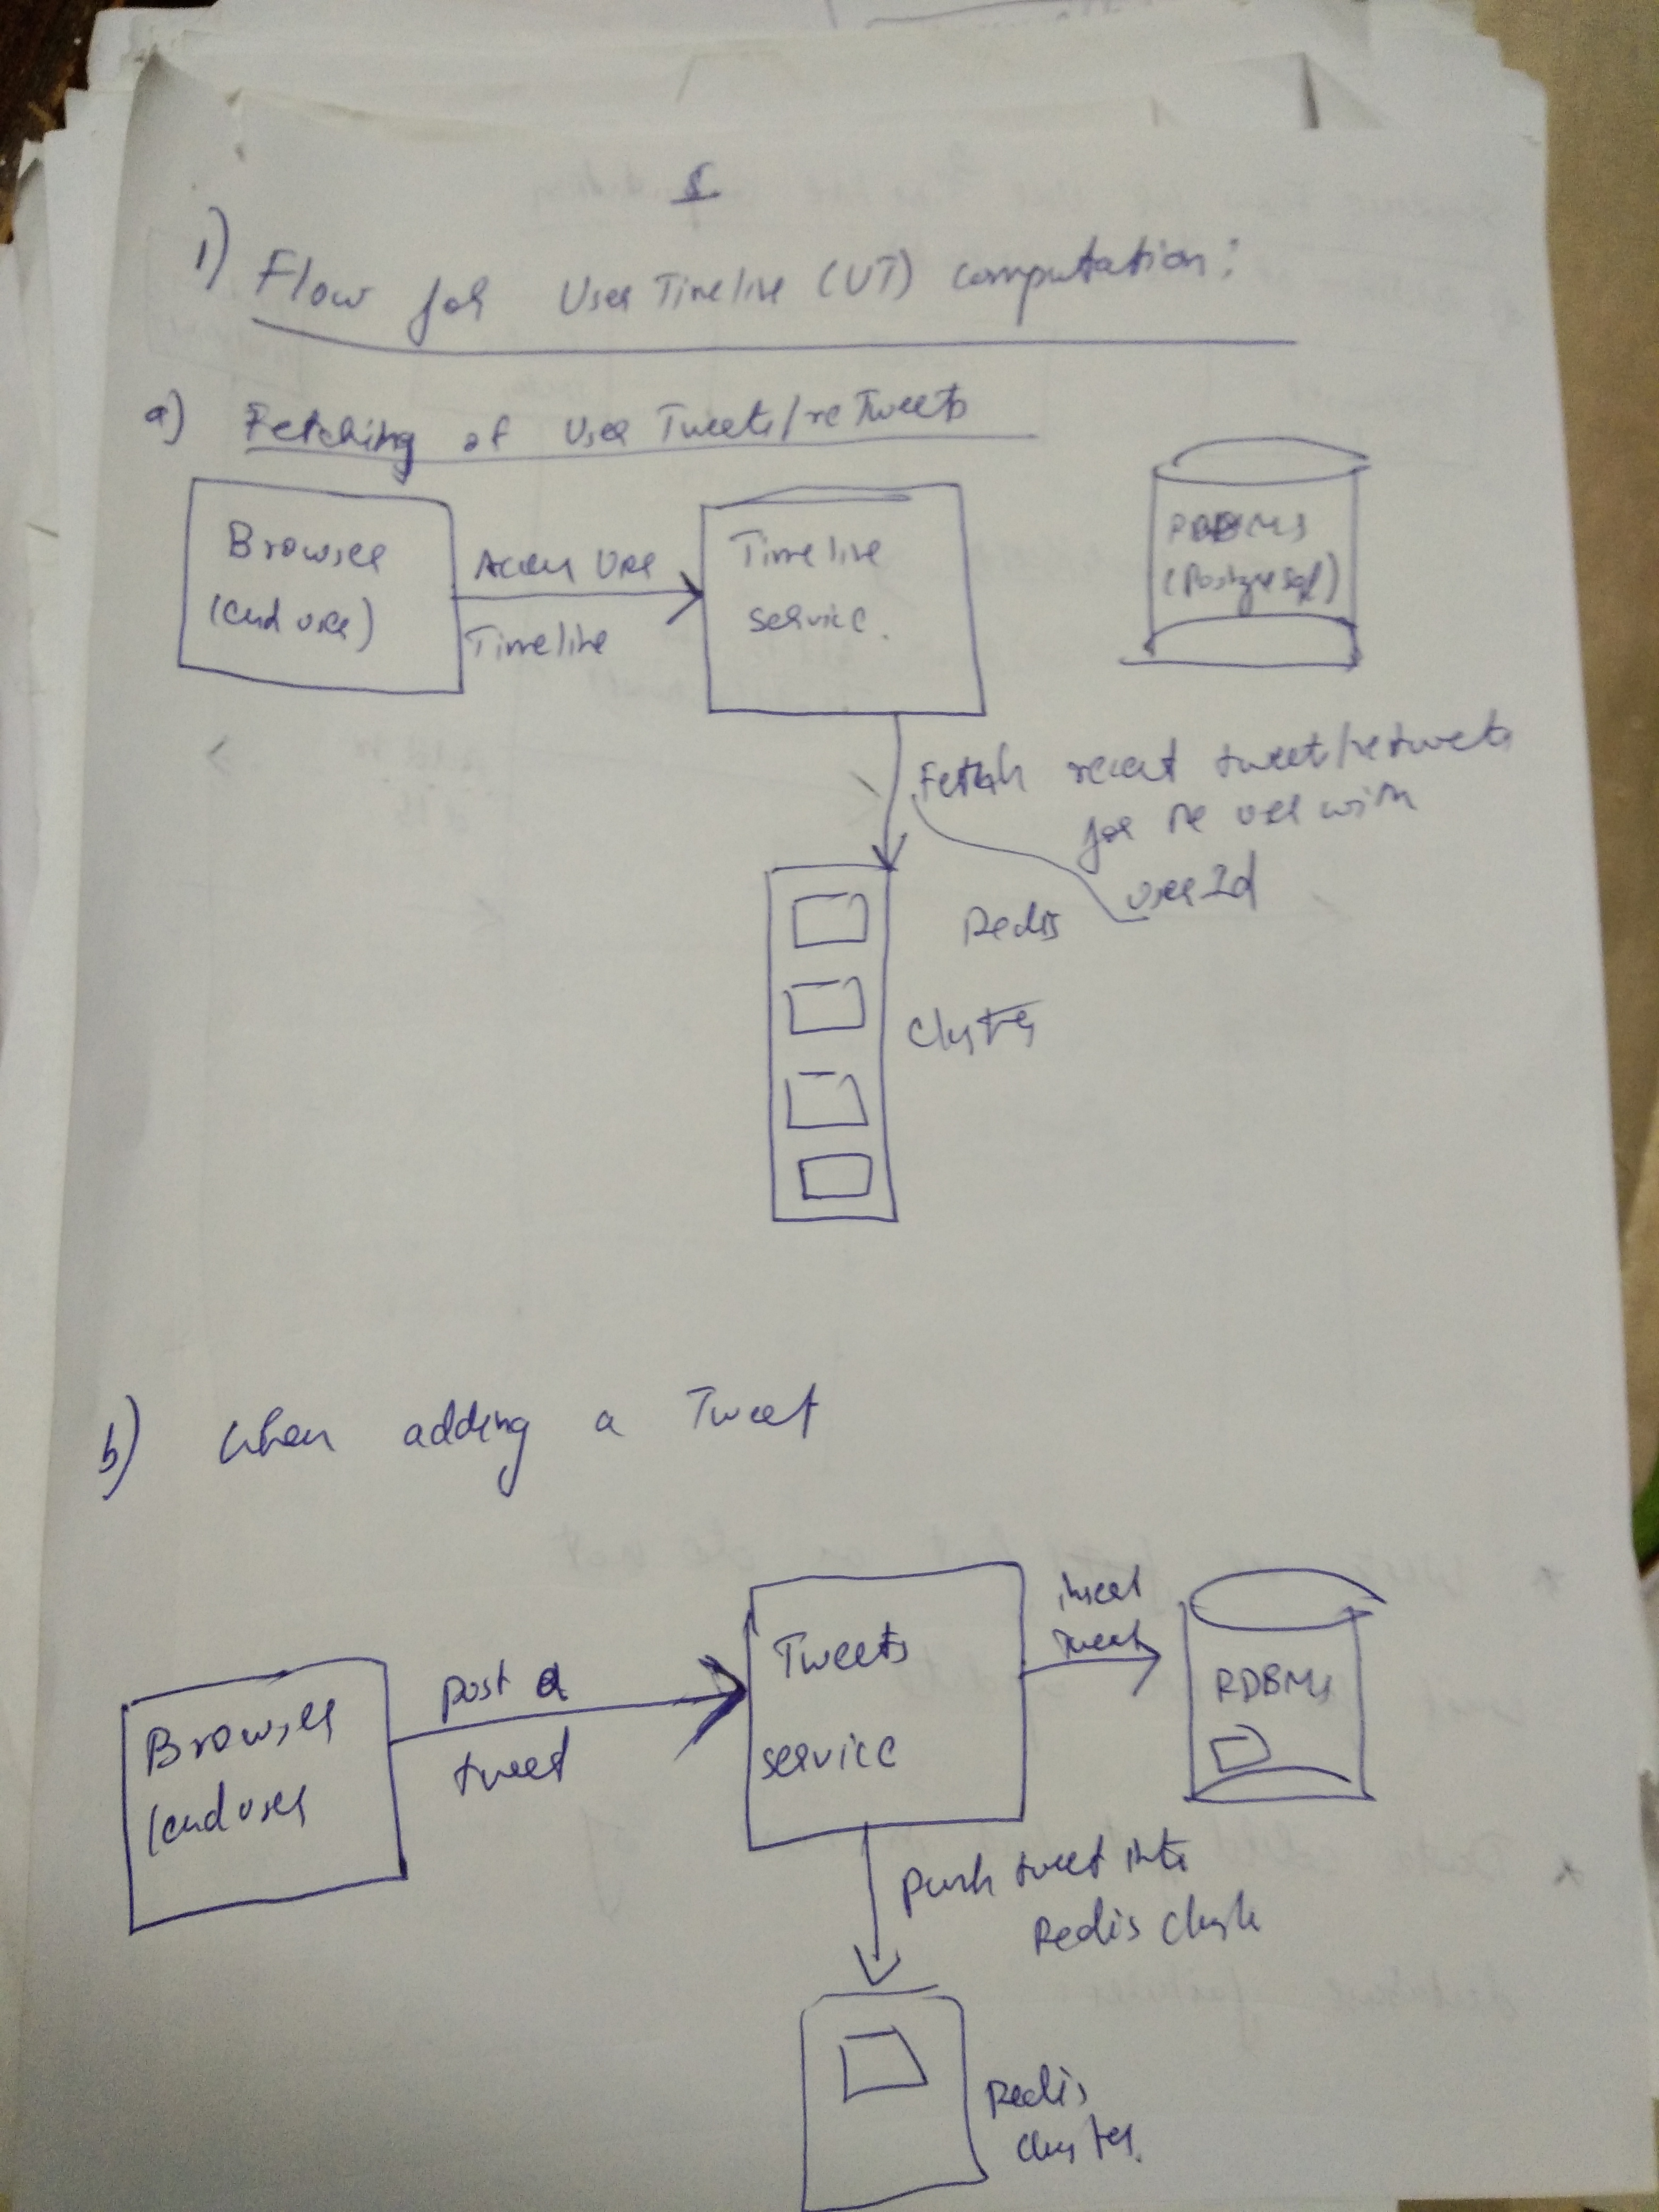 1) Flow for User Timeline (UT) computation:
a) Fetching of User Tweets/reTweets
Browser
(end user)
Access User
Timeline
Timeline
service.
RDBMS
(PostgreSql)
Fetch recent tweets/retweets
for the user with
userId
Redis
Cluster
b) When adding a Tweet
Browser
(end user
post a
tweet
Tweets
service
insert
tweet
RDBMS
push tweet into
Redis cluster
Redis
cluster.